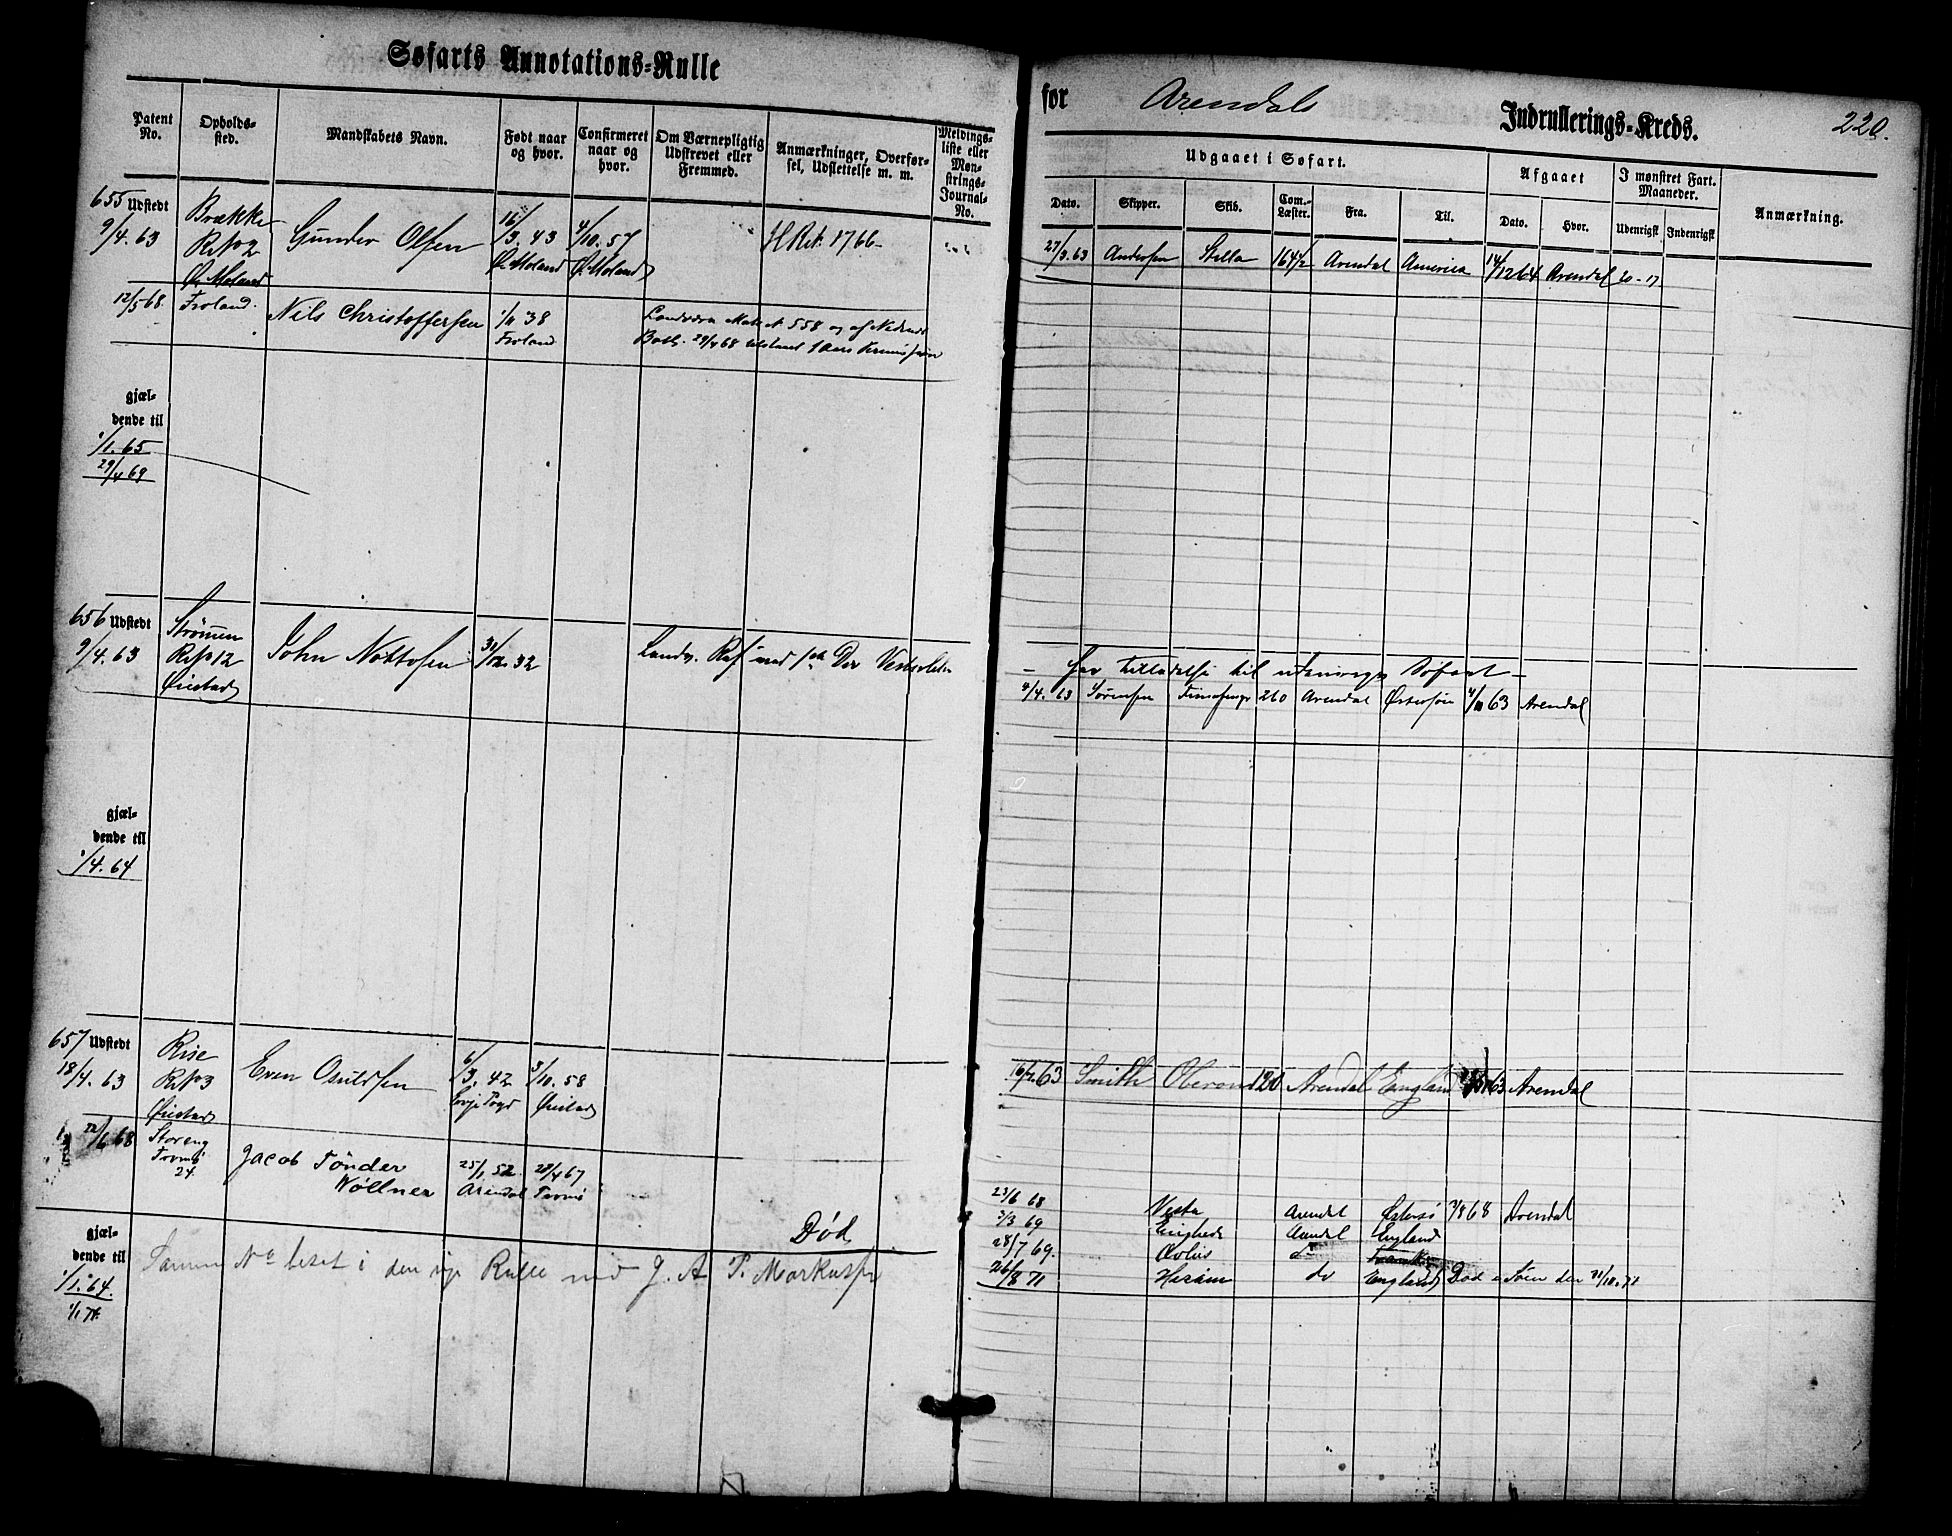 Søfarts Annotations-Rulle
Patent No.
Opholds-sted.
Mandskabets Navn.
Født naar og hvor.
Confirmeret naar og hvor.
Om Værnepligtig Udskrevet eller Fremmed.
Anmærkninger, Overfør-sel, Udslettelse m. m.
Meldings-liste eller Møn-strings-Journal-No.
655 Udstedt
9/4. 63
Brække
R No 2
Ø. Moland
Gunder Olsen
16/3. 43
Ø. Moland
4/10. 57
Ø. Moland
H Rek. 1766
12/5 68
Froland.
Nils Christoffersen
1/11 38
Froland
558 og af
29/4 68
gjæl-
dende til
1/1. 65
29/4 69
656 Udstedt
9/4. 63
Strömen
R No 12
Øiestad
John Nottosen
31/12. 32
Landv.
gjæl-
dende til
1/4. 64
657 Udstedt
18/4. 63
Rise
R No 3
Øiestad
Even Osuldsen
6/3. 42
3/10. 58
Øiestad
22/6 68
Storeng
Tromø
24.
Jacob Tönder
Wöllner
25/1 52
Arendal
28/4 67
Tromö
Död
gjæl-
dende til
1/1. 64.
1/1 74
Samme No besat i den nye Rulle med J. A. T. Markussen
for Arendals Indrullerings-Kreds.
220.
Udgaaet i Søfart.
Afgaaet
I mønstret Fart. Maaneder.
Anmærkning.
Dato.
Skipper.
Skib.
Com.-Læster.
Fra.
Til.
Dato.
Hvor.
Udenrigsk
Indenrigsk
27/3. 63 Andersen Stella 164 1/2 Arendal America 14/12 64 Arendal 20 - 17
- Har tilladelse til udenrigs Söfart -
4/4. 63 Sörensen 260 Arendal Østersöen 4/11 63 Arendal
16/4. 63 Smith Oberon 120 Arendal England 63 Arendal
23/6 68 Vesta Arendal Østersö 7/8 68 Arendal
3/3 69 Enighed Arendal England
28/7 69.
26/8 71 do England Död i Söen den 31/10. 71